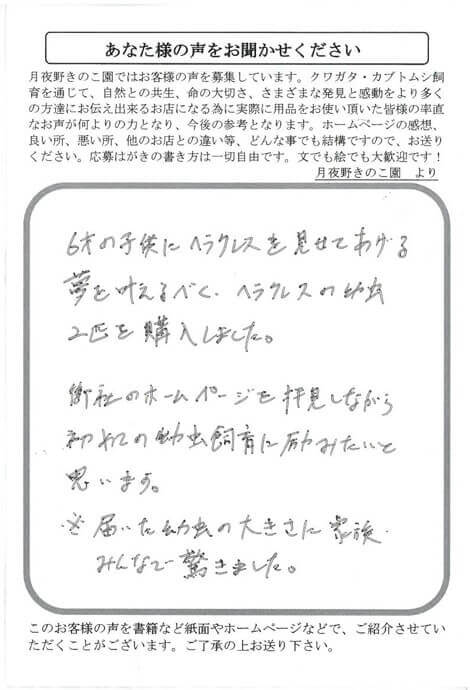 あなた様の声をお聞かせください
月夜野きのこ園ではお客様の声を募集しています。クワガタ・カブトムシ飼
育を通じて、自然との共生、命の大切さ、さまざまな発見と感動をより多く
の方達にお伝え出来るお店になる為に実際に用品をお使い頂いた皆様の率直
なお声が何よりの力となり、今後の参考となります。ホームページの感想、
良い所、悪い所、他のお店との違い等、どんな事でも結構ですので、お送り
ください。応募はがきの書き方は一切自由です。文でも絵でも大歓迎です！
月夜野きのこ園　より
6才の子供にヘラクレスを見せてあげる
夢を叶えるべく、ヘラクレスの幼虫
2匹を購入しました。
御社のホームページを拝見しながら
初めての幼虫飼育に励みたいと
思います。
※届いた幼虫の大きさに家族
みんなで驚きました。
このお客様の声を書籍など紙面やホームページなどで、ご紹介させてい
ただくことがございます。ご了承の上お送り下さい。